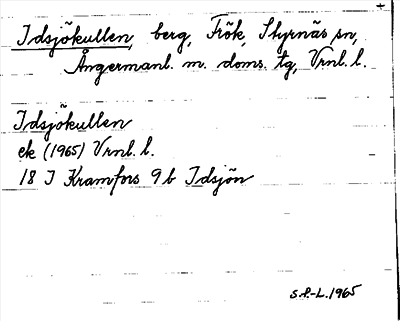 Idsjökullen, berg, Frök, Styrnäs sn,
Ångermanl. m. doms. tg, Vrnl. l.
Idsjökullen
ek (1965) Vrnl. l.
18 I Kramfors 9 b Idsjön
S.P.-L. 1965